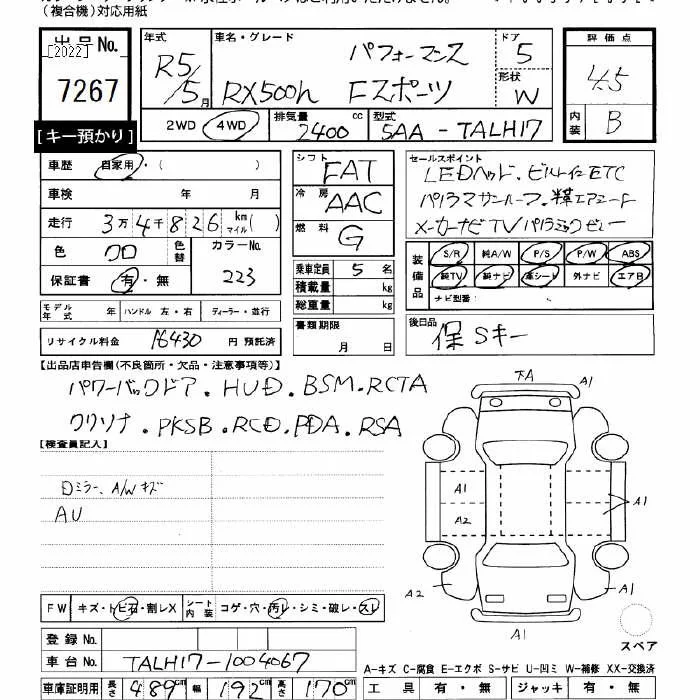 (複合機)対応用紙
出品No. [2022]
7267
[キー預かり]
年式 R5/5月
車名・グレード パフォーマンス
RX500h Fスポーツ
ドア 5
形状 W
2WD 4WD 排気量 2400 cc 型式 5AA-TALH17
評価点
4.5
内装 B
車歴 自家用・( )
車検 年 月
走行 3万4千826 km マイル( )
色 クロ 色替 カラーNo. 223
保証書 有・無
モデル年式 年 ハンドル 左・右 ディーラー・並行
リサイクル料金 16430 円 預託済
シフト FAT
冷房 AAC
燃料 G
乗車定員 5 名
積載量 kg
総重量 kg
書類期限
月 日
セールスポイント
LEDヘッド、ビルトインETC
パノラマサンルーフ、革エアシート
メーカーナビTVパノラミックビュー
装備品 S/R 純A/W P/S P/W ABS
純TV 純ナビ 革シート 外ナビ エアB
ナビ型番:
後日品 保 Sキー
【出品店申告欄(不良箇所・欠品・注意事項等)】
パワーバックドア.HUD.BSM.RCTA
クリソナ.PKSB.RCD.PDA.RSA
【検査員記入】
Dミラー、A/Wキズ
AU
下A A1
A1
A2
A1
A2 A1
A1
スペア
FW キズ・トビ石・割レX シート内装 コゲ・穴・汚レ・シミ・破レ・スレ
登録No.
車台No. TALH17-1004067
車庫証明用 長さ 489cm 幅 192cm 高さ 170cm
A-キズ C-腐食 E-エクボ S-サビ U-凹ミ W-補修 XX-交換済
工具 有・無 ジャッキ 有・無